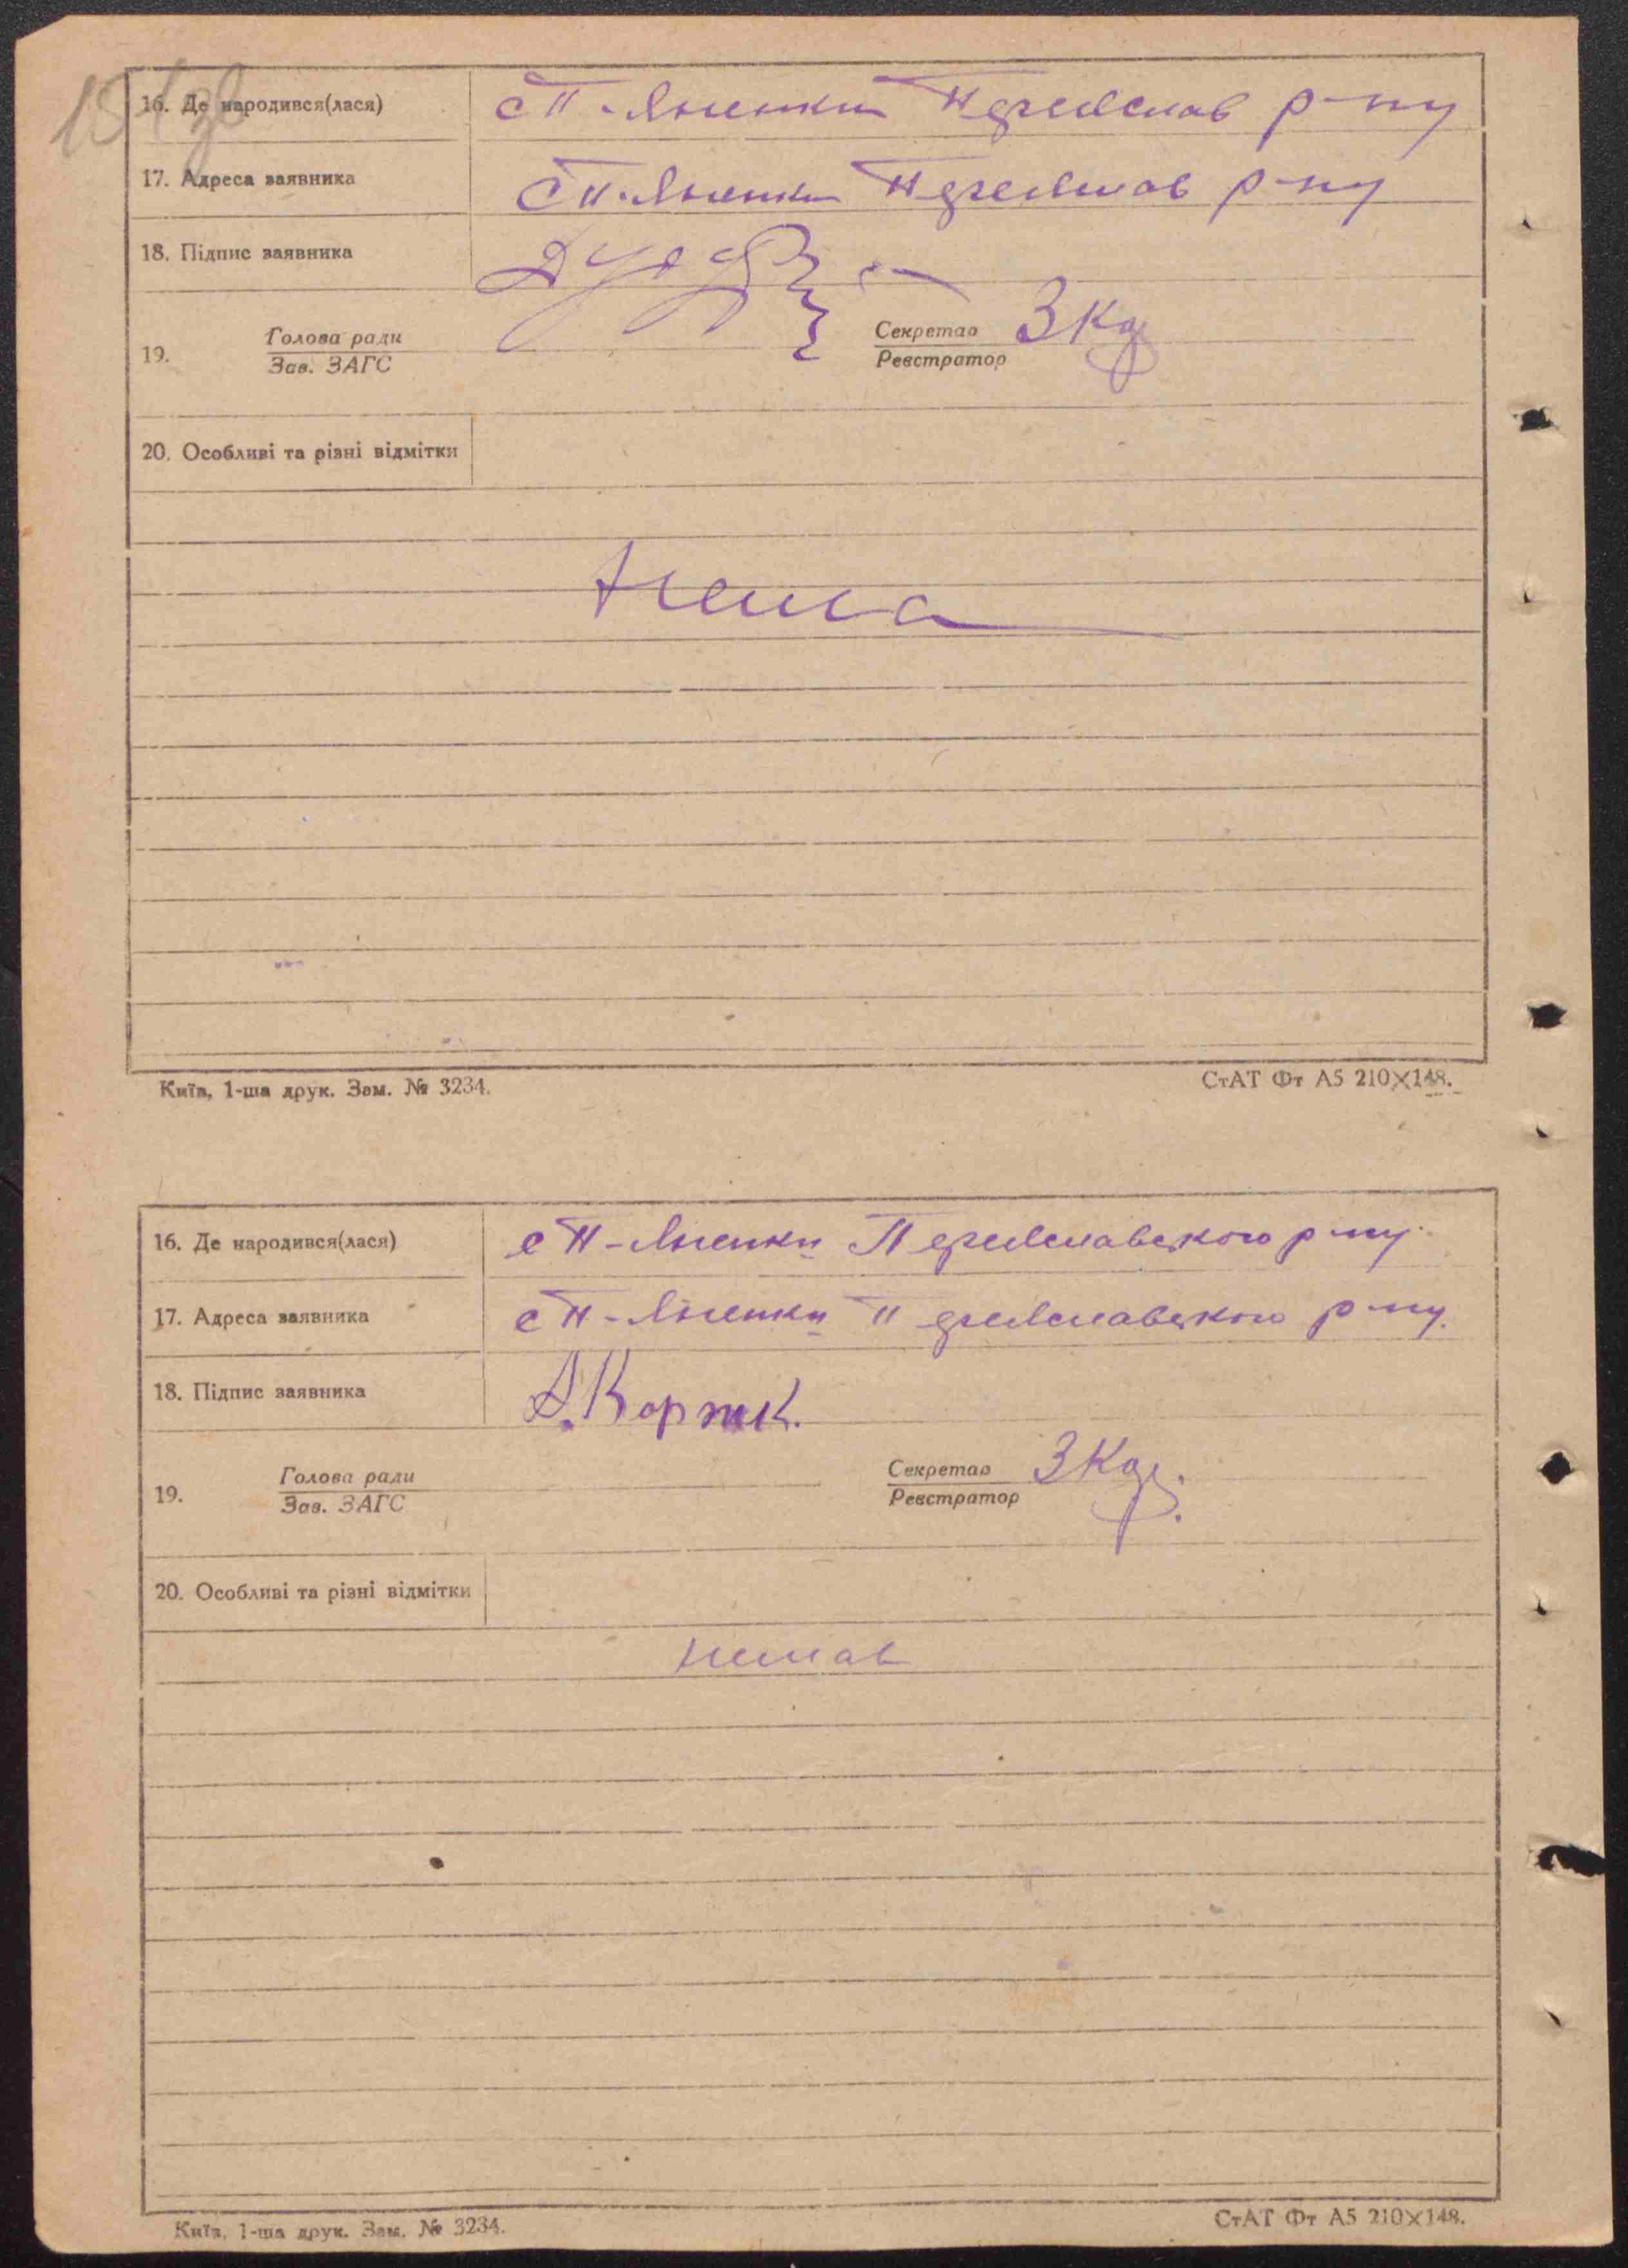 16. Де народився(лася) с П-Лненки Переяслав р-ну
17. Адреса заявника с П-Лненки Переяслав р-ну
18. Підпис заявника
19. Голова ради
Зав. ЗАГС
Секретар
Реєстратор
20. Особливі та різні відмітки
Нема
Київ, 1-ша друк. Зам. № 3234. СтАТ Фт А5 210×148.
16. Де народився(лася) с П-Лненки Переяславського р-ну
17. Адреса заявника с П-Лненки Переяславського р-ну.
18. Підпис заявника А. Коржик.
19. Голова ради
Зав. ЗАГС
Секретар
Реєстратор
20. Особливі та різні відмітки
немає
Київ, 1-ша друк. Зам. № 3234. СтАТ Фт А5 210×148.